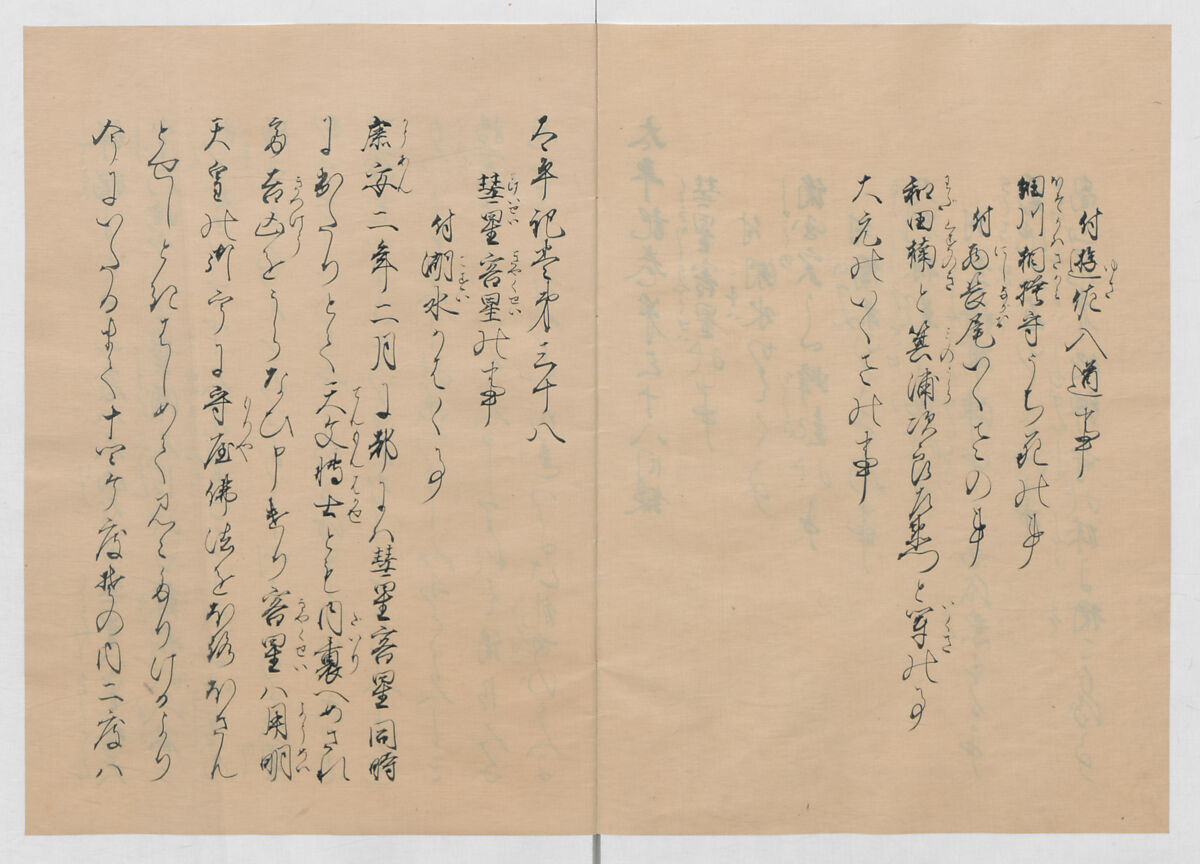 付遊佐入道事
細川相模守うち死の事
付西長尾いくさの事
和田楠と箕浦次郎左衛門と軍の事
大元のいくさの事
太平記巻第三十八
彗星客星の事
付湖水かはく事
康安二年二月に都には彗星客星同時
に出たりとて天文博士とも内裏へめされ
て吉凶をうらなひ申けり客星は用明
天皇の御宇に守屋佛法をほろほさん
とせしときはしめて見えたりけるより
今にいたるまて十四ケ度其の内二度は